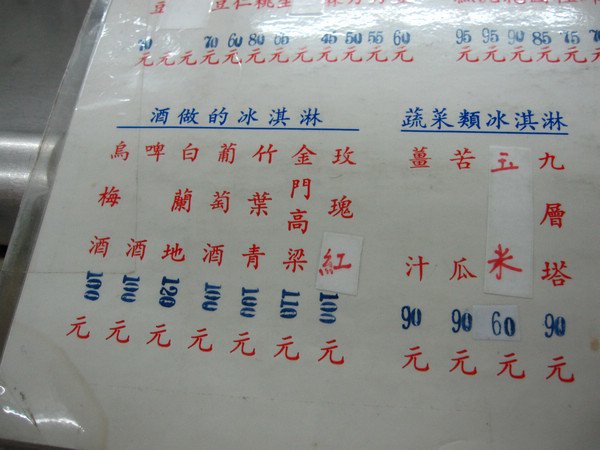 70 60 80 65 45 50 55 60
元 元 元 元 元 元 元 元
95 95 90 85 75
元 元 元 元 元
酒做的冰淇淋
烏梅酒 100 元
啤酒 100 元
白蘭地 120 元
葡萄酒 100 元
竹葉青 100 元
金門高梁 110 元
玫瑰紅 100 元
蔬菜類冰淇淋
薑汁 90 元
苦瓜 90 元
玉米 60 元
九層塔 90 元